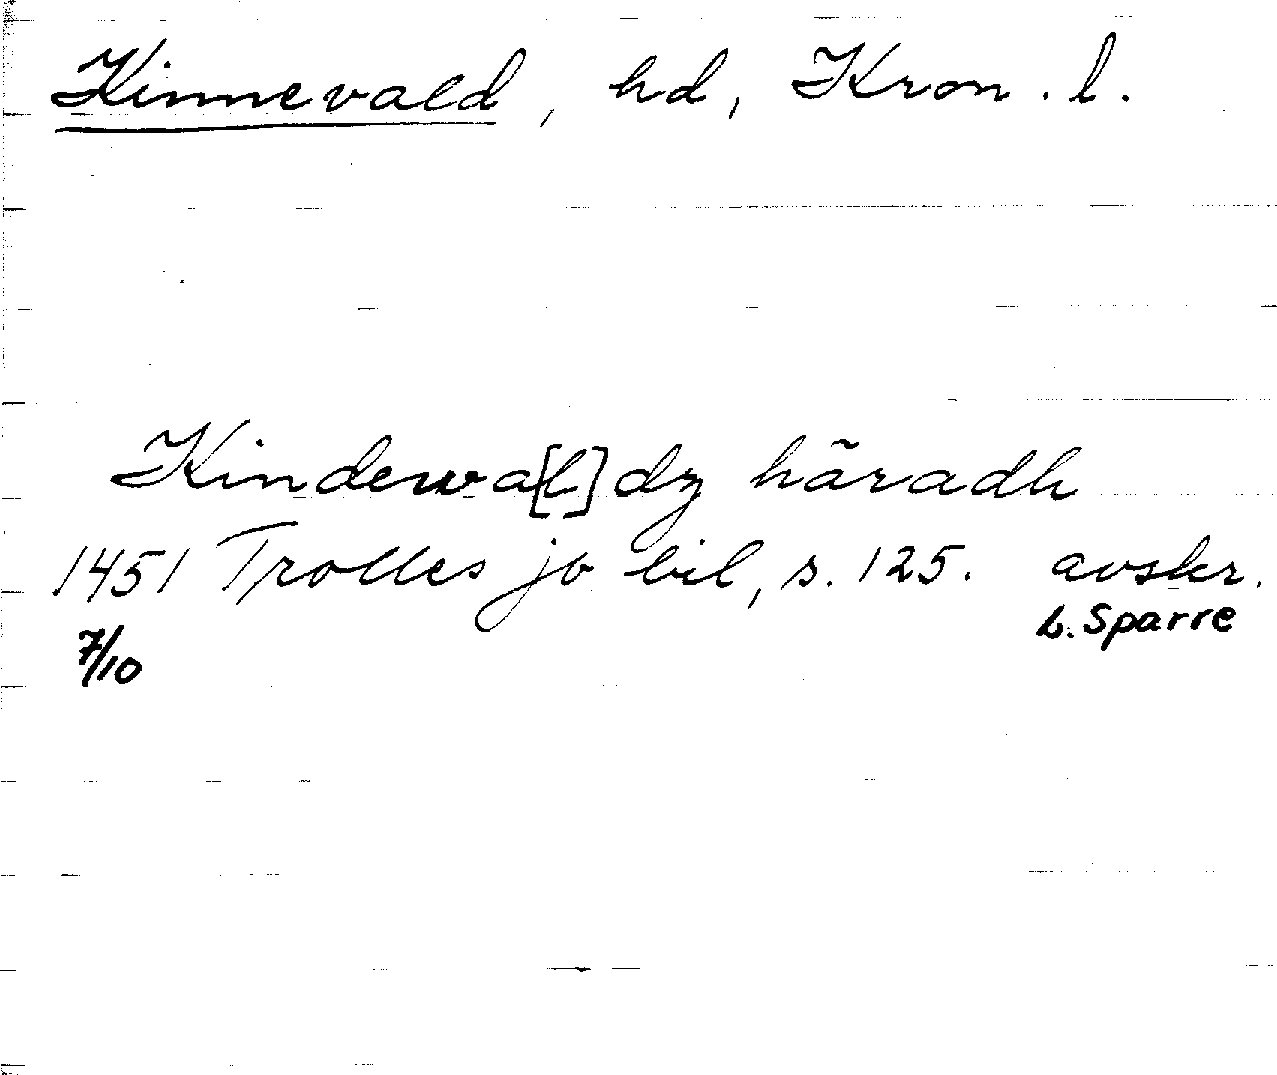 Kinnevald, hd, Kron. l.
Kindewa[l]dz häradh
1451 Trolles jb bil, s. 125. avskr.
7/10 L. Sparre